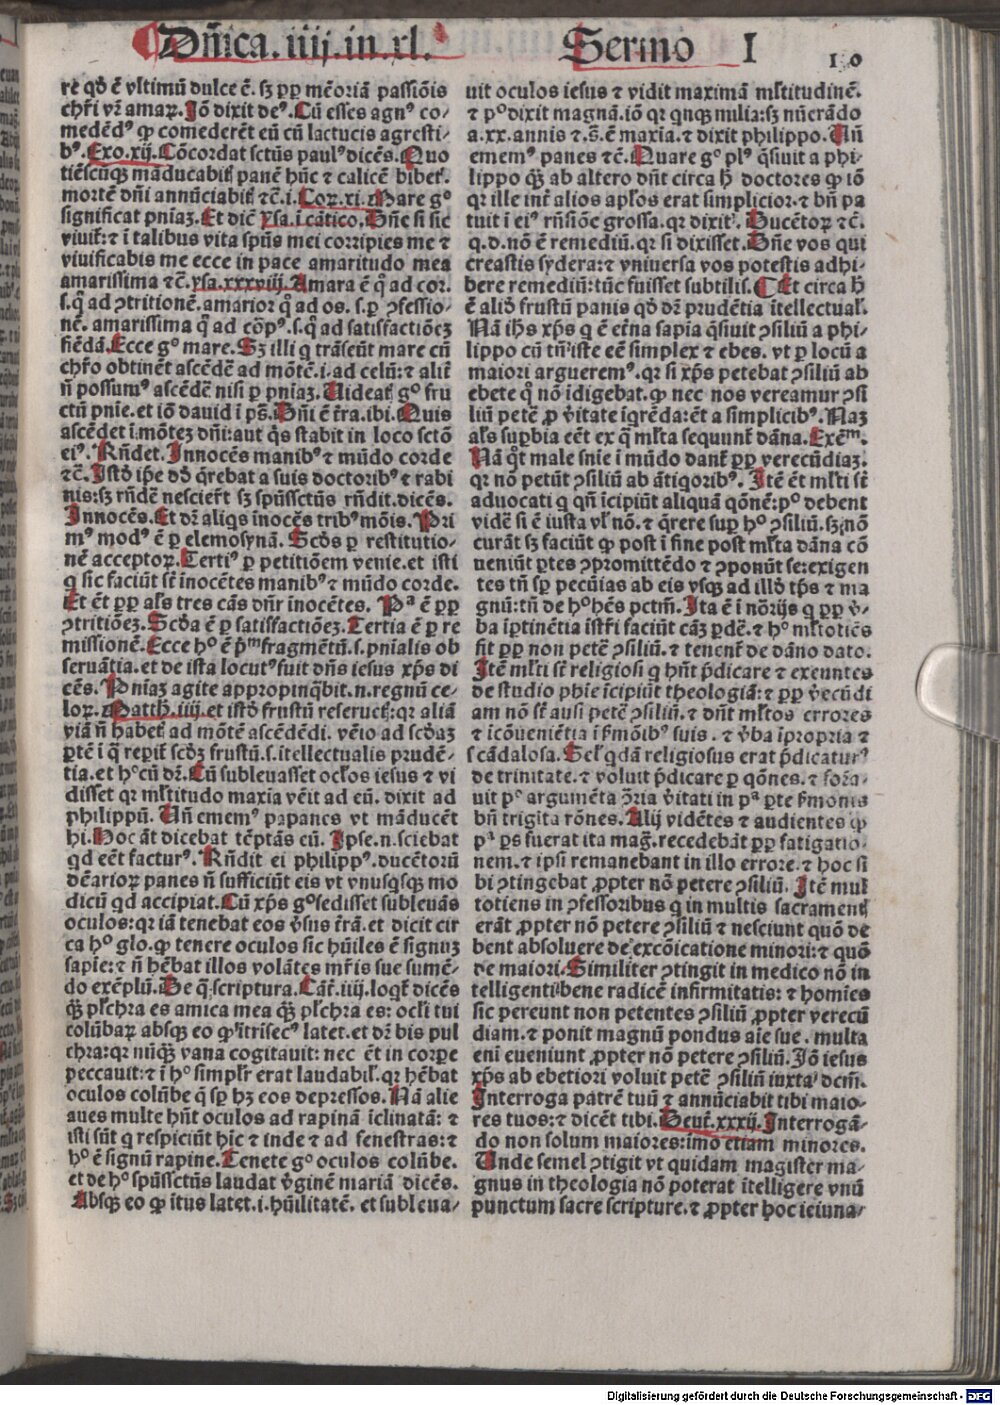 Dn̄ica.iiij.in.xl. Sermo I 1.0
re qđ ē vltimū dulce ē. sꝫ ꝓp mēoriā passiōis
chr̄i vr̄ amaꝝ. Jō dixit deꝰ. Cū esses agnꝰ co-
medēdꝰ ꝙ comederēt eū cū lactucis agresti-
bꝰ. Exo.xij. Cōcordat sctūs paulꝰ dicēs. Quo
tiēscūqꝫ māducabit̄ panē hūc ⁊ calicē bibet̄.
mortē dn̄i annūciabit̄ ⁊c̄. i. Coꝝ.xi. Mare gº
significat pn̄iaꝫ. Et dic̄ ysa. i cātico. Dn̄e si sic
viuit̄: ⁊ i talibus vita spūs mei corripies me ⁊
viuificabis me ecce in pace amaritudo mea
amarissima ⁊c̄. ysa.xxxviij. Amara ē q̄ ad cor.
s. q̄ ad ꝯtritionē. amarior q̄ ad os. s. ꝑ ꝯfessio-
nē. amarissima q̄ ad cōpꝰ. s. q̄ ad satisfactiōeꝫ
fiēdā. Ecce gº mare. Sꝫ illi q trāseūt mare cū
chr̄o obtinēt ascēdē ad mōtē. i. ad celū: ⁊ alit̄
n̄ possumꝰ ascēdē nisi ꝑ pn̄iaꝫ. Uideat̄ gº fru
ctū pn̄ie. et iō dauid i ps̄. Dn̄i ē t̄ra. ibi. Quis
ascēdet i mōteꝫ dn̄i: aut q̇s stabit in loco sctō
eiꝰ. Rn̄det. Innocēs manibꝰ ⁊ mūdo corde
⁊c̄. Istđ ip̄e dđ q̄rebat a suis doctoribꝰ ⁊ rabi
nis: sꝫ rn̄dē nescier̄t sꝫ spūssctūs rn̄dit. dicēs.
Innocēs. Et dr̄ aliqs inocēs tribꝰ mōis. Pri
mꝰ modꝰ ē ꝑ elemosynā. Scđs ꝑ restitutio-
nē acceptoꝝ. Tertiꝰ ꝑ petitiōem venie. et isti
q sic faciūt st̄ inocētes manibꝰ ⁊ mūdo corde.
Et ēt ꝓp al̄s tres cās dn̄r inocētes. Pª ē ꝓp
ꝯtritiōeꝫ. Scđa ē ꝑ satisfactiōeꝫ. Tertia ē ꝑ re
missionē. Ecce hº ē p̄m fragmētū. s. pn̄ialis ob
seruātia. et de ista locutꝰ fuit dn̄s iesus xp̄s di
cēs. Pn̄iaꝫ agite appropinq̄bit. n. regnū ce-
loꝝ. Matth.iiij. et istđ frustū reseruet̄: qꝛ aliā
viā n̄ habet̄ ad mōtē ascēdēdi. vēio ad scđaꝫ
ꝑtē i q̄ reꝑit̄ scđꝫ frustū. s. itellectualis prudē-
tia. et hºcū dr̄. Cū subleuasset ocl̄os iesus ⁊ vi
disset qꝛ ml̄titudo maxia vēit ad eū. dixit ad
philippū. Un̄ ememꝰ papanes vt māducēt
hi. Hoc āt dicebat tēptās eū. Ipse. n. sciebat
qd eēt facturꝰ. Rn̄dit ei philippꝰ. ducētorū
dēarioꝝ panes n̄ sufficiūt eis vt vnusqsqꝫ mo
dicū qd accipiat. Cū xp̄s gº sedisset subleuās
oculos: qꝛ iā tenebat eos v̇sus t̄rā. et dicit cir
ca hº glo. ꝙ tenere oculos sic hūiles ē signuꝫ
sapie: ⁊ n̄ hēbat illos volātes mr̄is sue sumē-
do exēplū. De q̄ scriptura. Cāt̄.iiij. loqt̄ dicēs
qꝫ̄ pl̄chra es amica mea qꝫ̄ pl̄chra es: ocl̄i tui
colūbaꝝ absqꝫ eo ꝙ itrisecꝰ latet. et dr̄ bis pul
chra: qꝛ nūqꝫ̄ vana cogitauit: nec ēt in corꝑe
peccauit: ⁊ i hº simpl̄r erat laudabil̄. qꝛ hēbat
oculos colūbe q̄ sꝑ hꝫ eos depressos. Nā alie
aues multe hn̄t oculos ad rapinā iclinatā: ⁊
isti sūt q respiciūt hic ⁊ inde ⁊ ad fenestras: ⁊
hº ē signū rapine. Tenete gº oculos colūbe.
et de hº spūssctūs laudat v̇ginē mariā dicēs.
Absqꝫ eo ꝙ itus latet. i. hūilitatē. et subleua-
uit oculos iesus ⁊ vidit maximā ml̄titudinē.
⁊ pº dixit magnā. iō qꝛ qnqꝫ milia: sꝫ nūerādo
a.xx. annis ⁊ s̄. ē maxia. ⁊ dixit philippo. Un̄
ememꝰ panes ⁊c̄. Quare gº plꝰ q̄siuit a phi-
lippo qꝫ̄ ab altero dn̄t circa h̄ doctores ꝙ iō
qꝛ ille int̄ alios apl̄os erat simplicior. ⁊ bn̄ pa
tuit i eiꝰ rn̄siōe grossa. qꝛ dixit. Ducētoꝝ ⁊c̄.
q. d. nō ē remediū. qꝛ si dixisset. Dn̄e vos qui
creastis sydera: ⁊ vniuersa vos potestis adhi-
bere remediū: tūc fuisset subtilis. ¶ Et circa h̄
ē aliđ frustū panis qđ dr̄ prudētia itellectual̄.
Nā ih̄s xp̄s q ē et̄na sapia q̄siuit ꝯsiliū a phi-
lippo cū tn̄ iste eēt simplex ⁊ ebes. vt ꝑ locū a
maiori argueremꝰ. qꝛ si xp̄s petebat ꝯsiliū ab
ebete q̄ nō idigebat. ꝙ nec nos vereamur ꝯsi
liū petē ꝓ v̇itate iq̄rēda: ēt a simplicibꝰ. Naꝫ
al̄s suꝑbia eēt ex q̄ ml̄ta sequunt̄ dāna. Exēm̄.
Nā q̄t male sn̄ie i mūdo dant̄ ꝓp verecūdiaꝫ.
qꝛ nō petūt ꝯsiliū ab ātiqoribꝰ. Itē ēt ml̄ti st̄
aduocati q qn̄ īcipiūt aliquā qōnē: pº debent
vidē si ē iusta vl̄ nō. ⁊ q̄rere suꝑ hº ꝯsiliū. sꝫ nō
curāt sꝫ faciūt ꝙ post i fine post ml̄ta dāna cō
ueniūt ꝑtes ꝯpromittēdo ⁊ ꝯponūt se: exigen
tes tn̄ sꝑ pecūias ab eis vsqꝫ ad illđ tp̄s ⁊ ma
gnū: tn̄ de hº hēs pctm̄. Ita ē i nōrijs q ꝓp v̇-
ba iꝑtinētia istr̄i faciūt cāꝫ ꝑdē. ⁊ hº ml̄totiēs
fit ꝓp non petē ꝯsiliū. ⁊ tenent̄ de dāno dato.
Itē ml̄ti st̄ religiosi q hn̄t p̄dicare ⁊ exeuntes
de studio phie icipiūt theologiā: ⁊ ꝓp v̇ecūdi
am nō st̄ ausi petē ꝯsiliū. ⁊ dn̄t ml̄tos errores
⁊ icōueniētia i f̄mōibꝰ suis. ⁊ v̇ba ipropria ⁊
scādalosa. Sel̄ qdā religiosus erat p̄dicaturꝰ
de trinitate. ⁊ voluit p̄dicare ꝑ qōnes. ⁊ for̄a-
uit pº argumēta ꝯ̄ria v̇itati in pª ꝑte f̄monis
bn̄ trigita rōnes. Alij vidētes ⁊ audientes ꝙ
pª ꝑs fuerat ita maḡ. recedebāt ꝓp fatigatio-
nem. ⁊ ipsi remanebant in illo errore. ⁊ hoc si
bi ꝯtingebat ꝓpter nō petere ꝯsiliū. Itē mul
totiens in ꝯfessoribus q in multis sacrament̄
erāt ꝓpter nō petere ꝯsiliū ⁊ nesciunt quō de
bent absoluere de excōicatione minori: ⁊ quō
de maiori. Similiter ꝯtingit in medico nō in
telligenti bene radicē infirmitatis: ⁊ homīes
sic pereunt non petentes ꝯsiliū ꝓpter verecū
diam. ⁊ ponit magnū pondus aīe sue. multa
enī eueniunt ꝓpter nō petere ꝯsiliū. Iō iesus
xp̄s ab ebetiori voluit petē ꝯsiliū iuxta dcm̄.
Interroga patrē tuū ⁊ annūciabit tibi maio-
res tuos: ⁊ dicēt tibi. Deut̄.xxxij. Interrogā-
do non solum maiores: imo etiam minores.
Unde semel ꝯtigit vt quidam magister ma-
gnus in theologia nō poterat itelligere vnū
punctum sacre scripture. ⁊ ꝓpter hoc ieiuna-
Digitalisierung gefördert durch die Deutsche Forschungsgemeinschaft - DFG